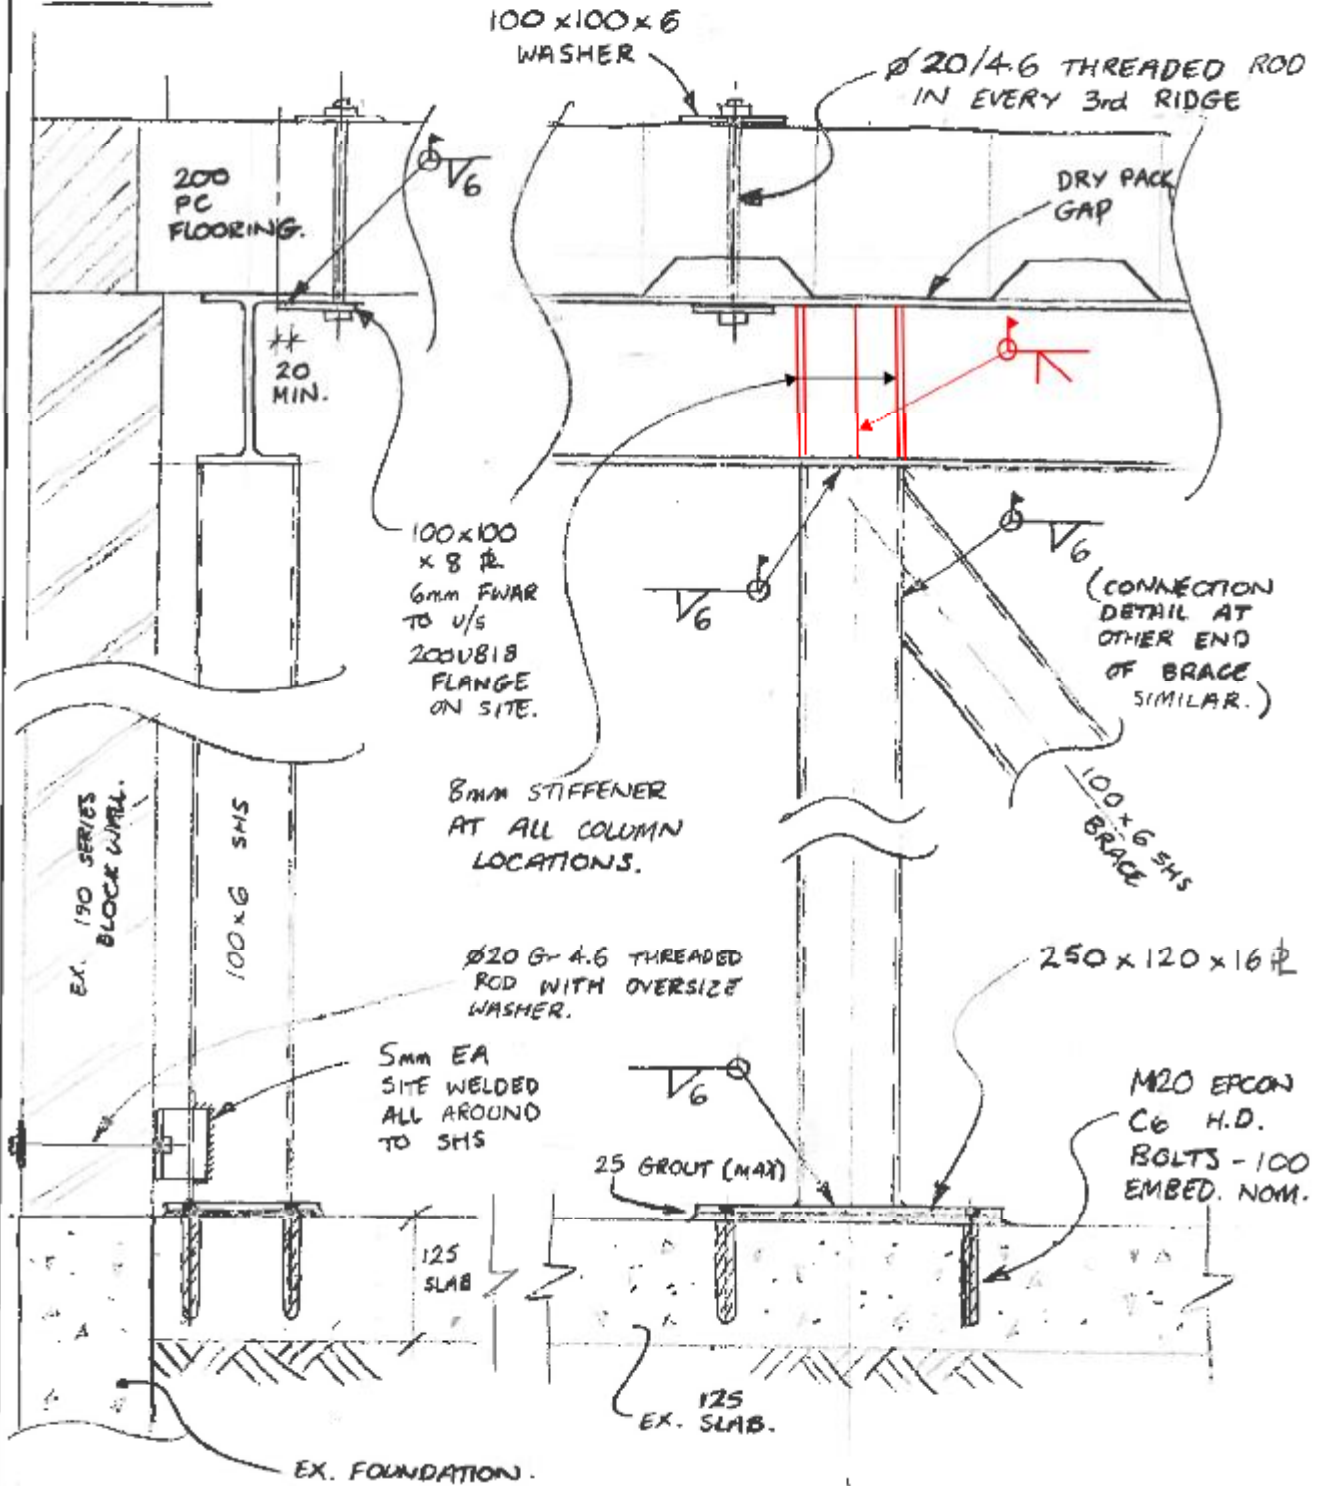 100 x 100 x 6
WASHER
Ø 20/4.6 THREADED ROD
IN EVERY 3rd RIDGE
6
200
PC
FLOORING.
DRY PACK
GAP
20
MIN.
100 x 100
x 8 PL
6mm FWAR
TO U/S
200UB18
FLANGE
ON SITE.
6
6
(CONNECTION
DETAIL AT
OTHER END
OF BRACE
SIMILAR.)
100 x 6 SHS
BRACE
8mm STIFFENER
AT ALL COLUMN
LOCATIONS.
EX. 190 SERIES
BLOCK WALL.
100 x 6 SHS
Ø20 G- 4.6 THREADED
ROD WITH OVERSIZE
WASHER.
250 x 120 x 16 PL
5mm EA
SITE WELDED
ALL AROUND
TO SHS
6
M20 EPCON
C6 H.D.
BOLTS - 100
EMBED. NOM.
25 GROUT (MAX)
125
SLAB
125
EX. SLAB.
EX. FOUNDATION.